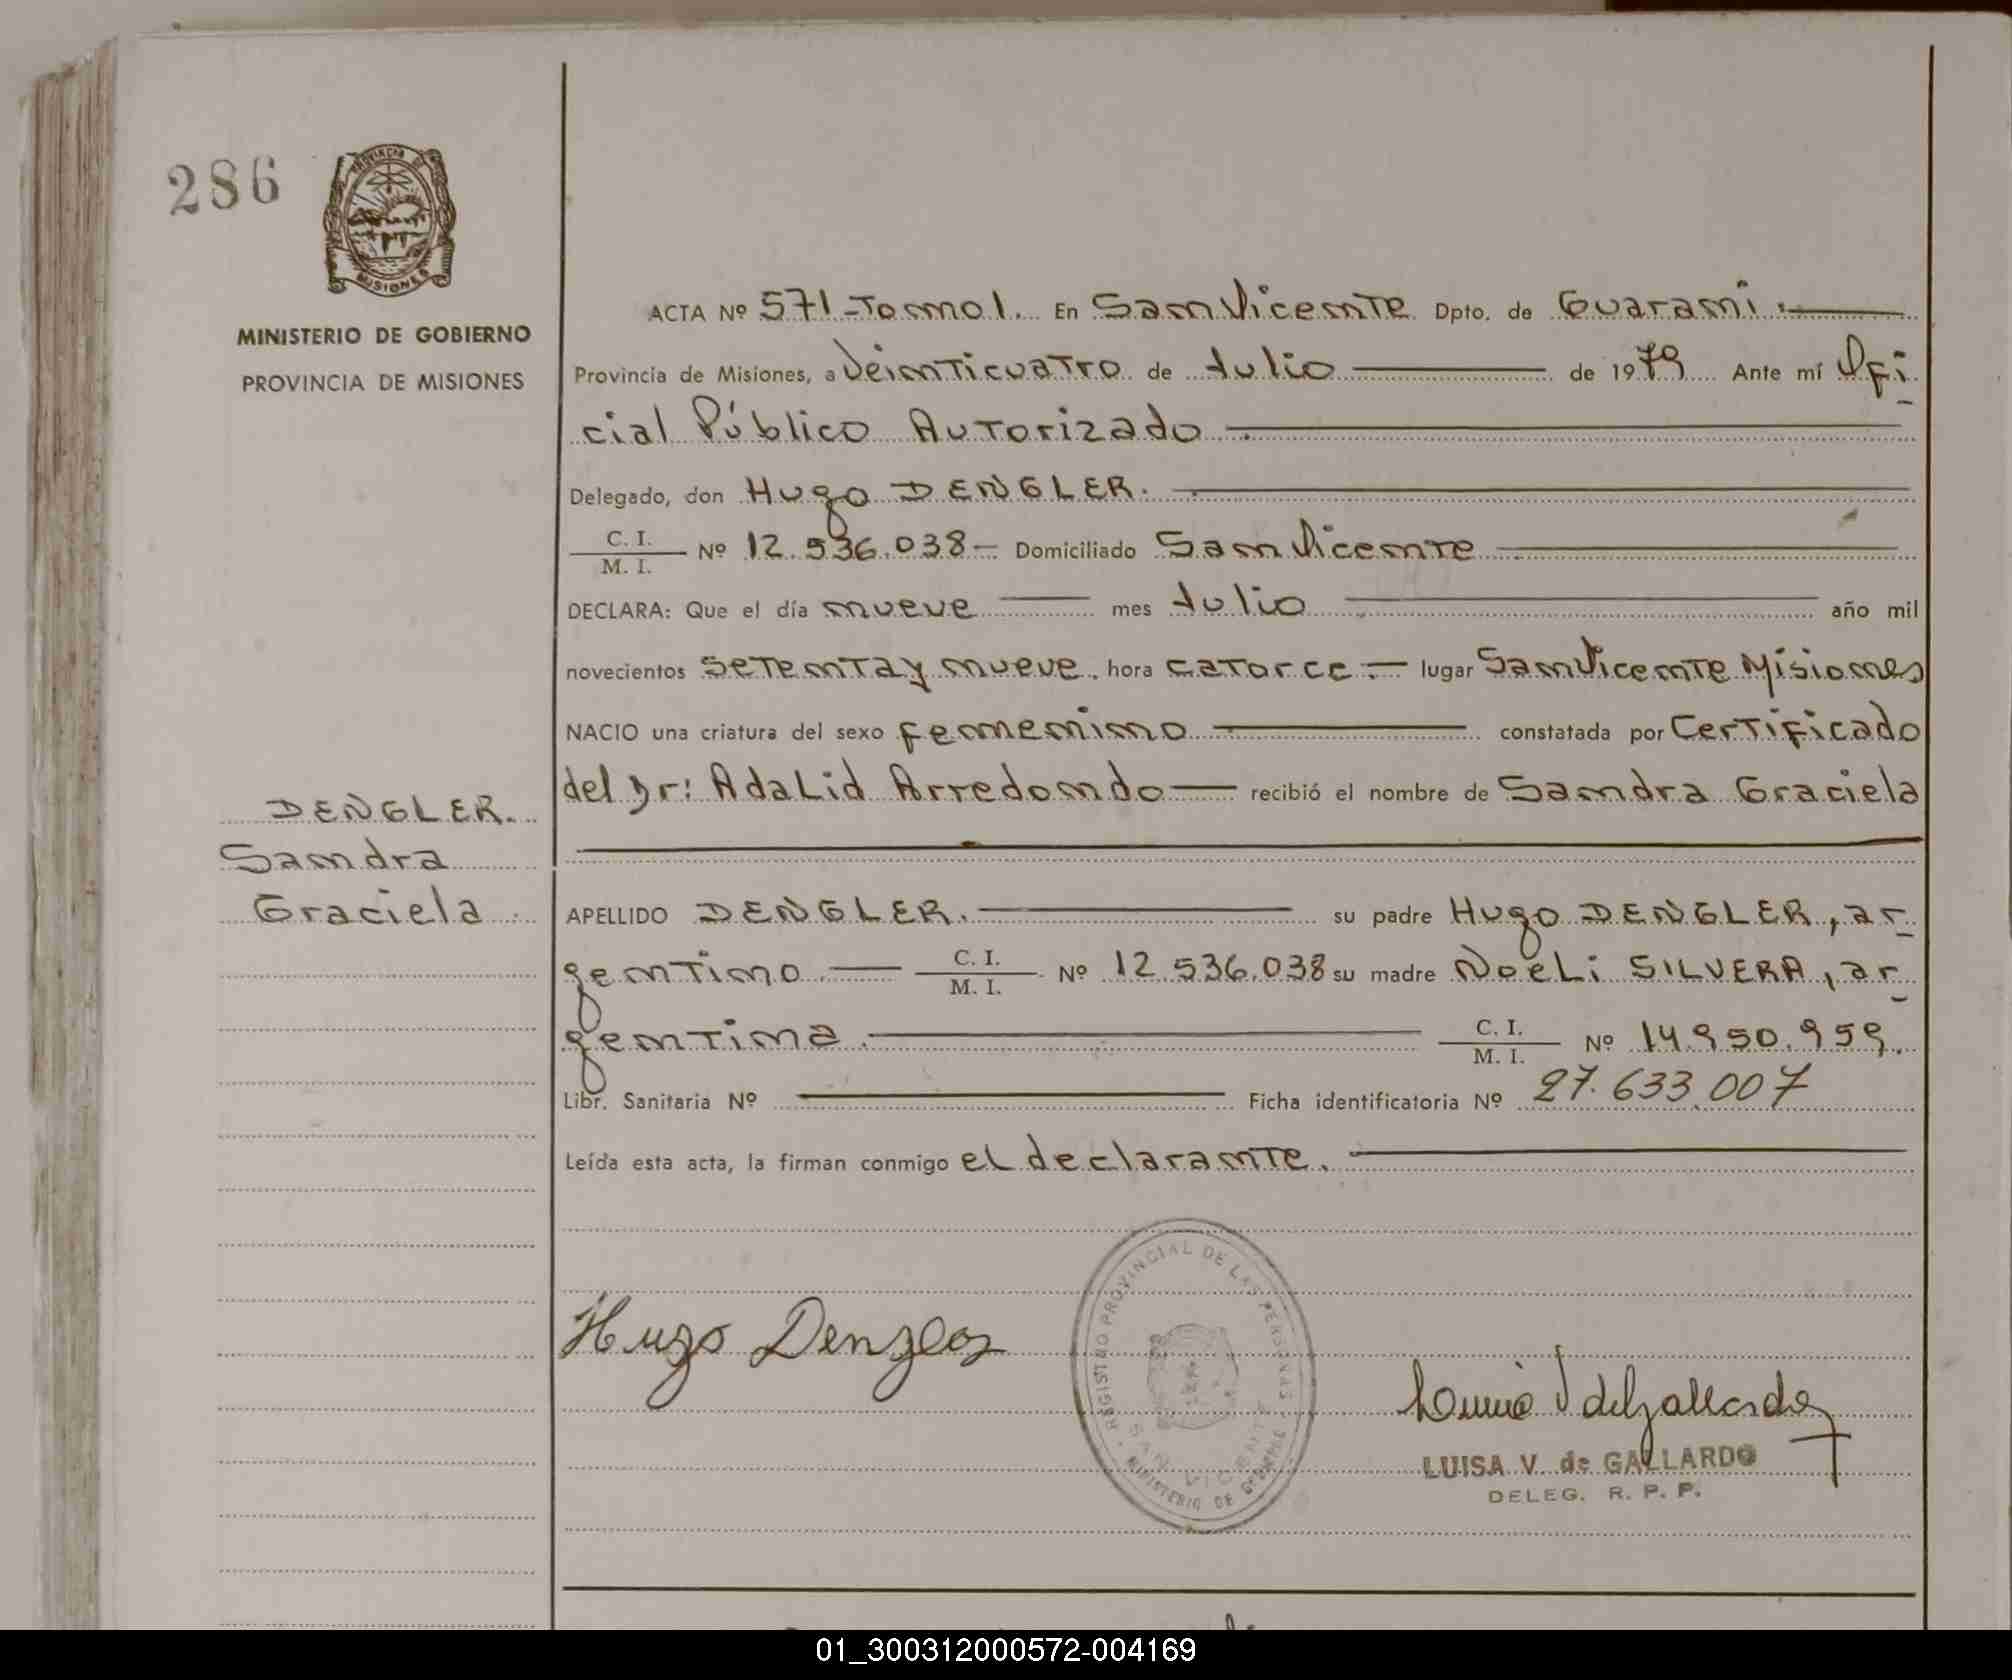 286
PROVINCIA DE
MISIONES
MINISTERIO DE GOBIERNO
PROVINCIA DE MISIONES
ACTA Nº 571-Tomo 1. En San Vicente Dpto. de Guarani.
Provincia de Misiones, a Veinticuatro de Julio de 1979 Ante mí Ofi
cial Público Autorizado.
Delegado, don Hugo DENGLER.
C. I.
M. I. Nº 12.536.038- Domiciliado San Vicente
DECLARA: Que el día nueve mes Julio año mil
novecientos setenta y nueve. hora catorce.- lugar San Vicente Misiones
NACIO una criatura del sexo femenino constatada por Certificado
del Dr: Adalid Arredondo recibió el nombre de Sandra Graciela
DENGLER.
Sandra
Graciela
APELLIDO DENGLER. su padre Hugo DENGLER, ar
gentino C. I.
M. I. Nº 12.536.038 su madre Noeli SILVERA, ar
gentina. C. I.
M. I. Nº 14.950.959.
Libr. Sanitaria Nº Ficha identificatoria Nº 27.633.007
Leída esta acta, la firman conmigo el declarante.
REGISTRO PROVINCIAL DE LAS PERSONAS
SAN VICENTE
MINISTERIO DE GOBIERNO
Hugo Dengler
LUISA V. de GALLARDO
DELEG. R. P. P.
01_300312000572-004169